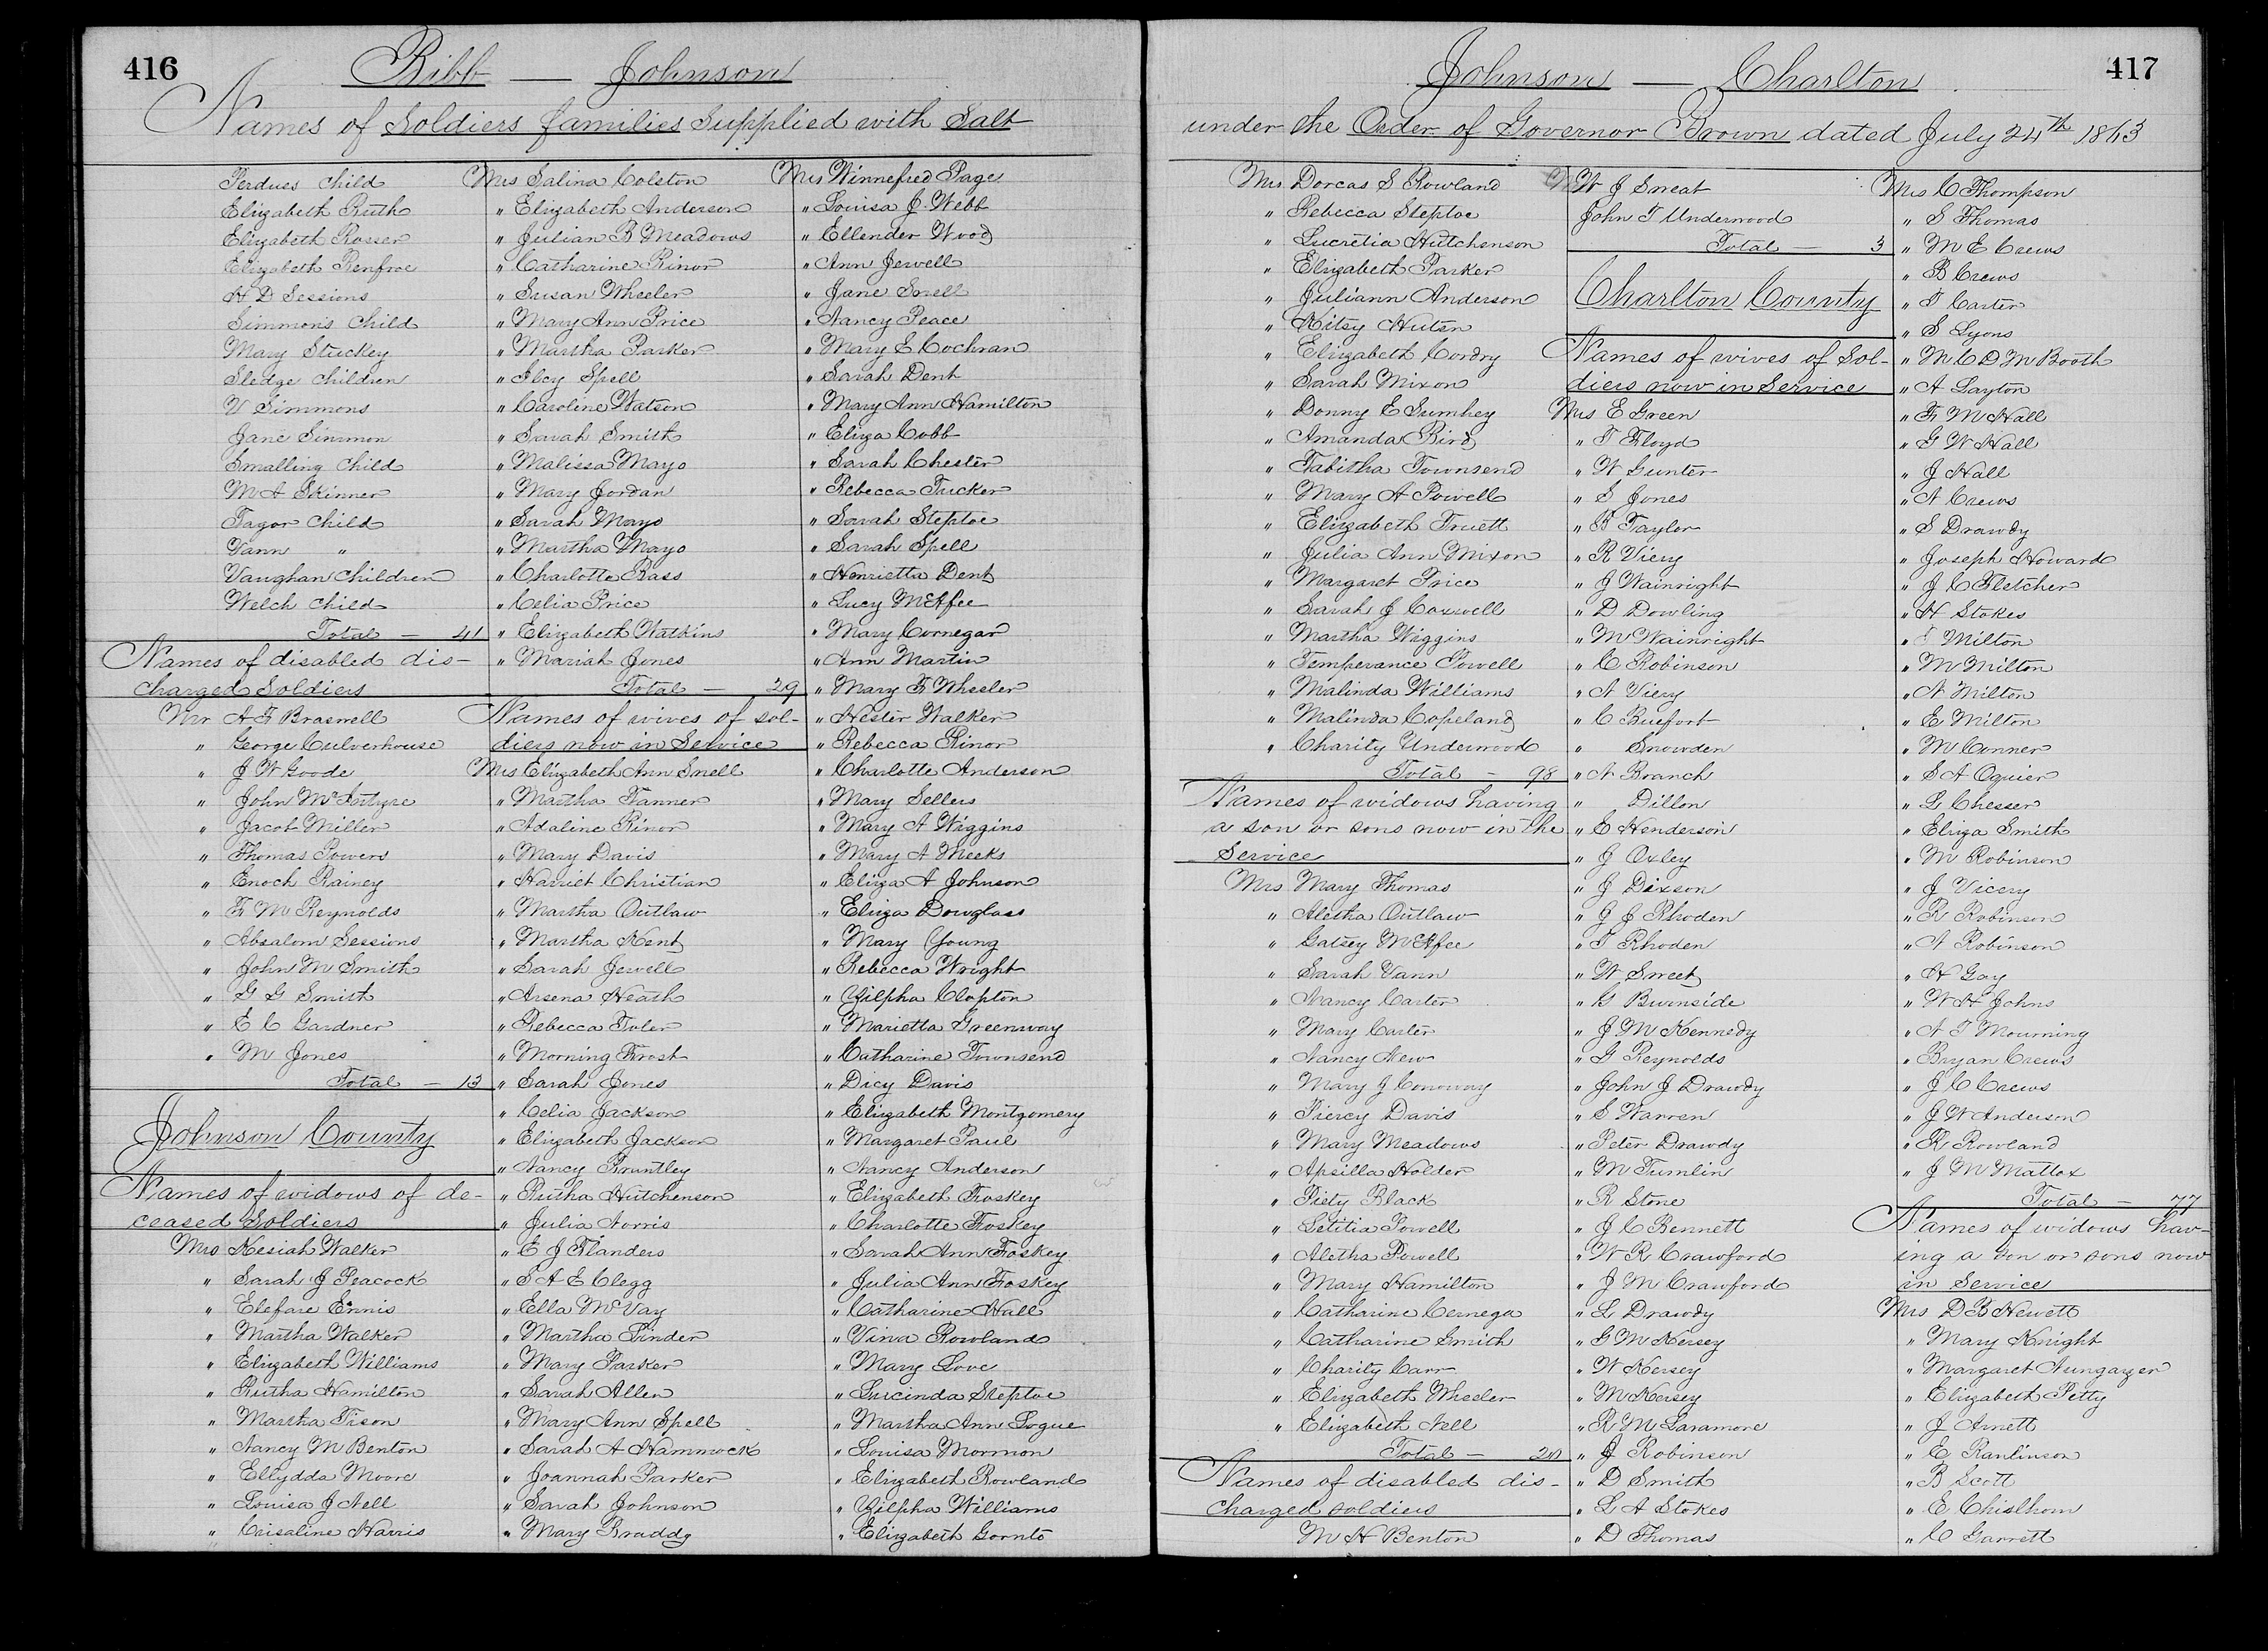 416
Bibb — Johnson
Names of Soldiers families Supplied with Salt
Perdues Child
Elizabeth Ruth
Elizabeth Rosser
Elizabeth Renfroe
H D Sessions
Simmons Child
Mary Stuckey
Sledge Children
V Simmons
Jane Simmon
Smalling Child
M A Skinner
Fagor Child
Vann "
Vaughan Children
Welch Child
Total — 41
Names of disabled dis-
charged Soldiers
Mr A F Braswell
" George Culverhouse
" J W Goode
" John McIntyre
" Jacob Miller
" Thomas Powers
" Enoch Rainey
" F M Reynolds
" Absalom Sessions
" John M Smith
" G G Smith
" E C Gardner
" M Jones
Total — 13
Johnson County
Names of widows of de-
ceased Soldiers
Mrs Kesiah Walker
" Sarah J Peacock
" Elefare Ennis
" Martha Walker
" Elizabeth Williams
" Rutha Hamilton
" Martha Tison
" Nancy M Benton
" Ellydda Moore
" Louisa J Nell
" Crisaline Harris
Mrs Salina Colston
" Elizabeth Anderson
" Julian B Meadows
" Catharine Rinor
" Susan Wheeler
" Mary Ann Price
" Martha Parker
" Ilcy Spell
" Caroline Watson
" Sarah Smith
" Malissa Mayo
" Mary Jordan
" Sarah Mayo
" Martha Mayo
" Charlotte Bass
" Celia Price
" Elizabeth Watkins
" Mariah Jones
Total — 29
Names of wives of sol-
diers now in Service
Mrs Elizabeth Ann Snell
" Martha Tanner
" Adaline Rinor
" Mary Davis
" Harriet Christian
" Martha Outlaw
" Martha Kent
" Sarah Jewell
" Arsena Heath
" Rebecca Toler
" Morning Frost
" Sarah Jones
" Celia Jackson
" Elizabeth Jackson
" Nancy Bruntley
" Rutha Hutchenson
" Julia Norris
" E J Flanders
" S A E Clegg
" Ella McVay
" Martha Pinder
" Mary Parker
" Sarah Allen
" Mary Ann Spell
" Sarah A Hammock
" Joannah Parker
" Sarah Johnson
" Mary Braddy
Mrs Winnefred Page
" Louisa J. Webb
" Ellender Wood
" Ann Jewell
" Jane Snell
" Nancy Peace
" Mary E Cochran
" Sarah Dent
" Mary Ann Hamilton
" Eliza Cobb
" Sarah Chester
" Rebecca Tucker
" Sarah Steptoe
" Sarah Spell
" Henrietta Dent
" Lucy McAfee
" Mary Cornegar
" Ann Martin
" Mary F Wheeler
" Hester Walker
" Rebecca Rinor
" Charlotte Anderson
" Mary Sellers
" Mary A Wiggins
" Mary A Meeks
" Eliza A Johnson
" Eliza Dowglass
" Mary Young
" Rebecca Wright
" Zilpha Clopton
" Marietta Greenway
" Catharine Townsend
" Dicy Davis
" Elizabeth Montgomery
" Margaret Paul
" Nancy Anderson
" Elizabeth Foskey
" Charlotte Foskey
" Sarah Ann Foskey
" Julia Ann Foskey
" Catharine Hall
" Vina Rowland
" Mary Love
" Lucinda Steptoe
" Martha Ann Logue
" Louisa Mormon
" Elizabeth Rowland
" Zilpha Williams
" Elizabeth Gornto
417
Johnson — Charlton
under the Order of Governor Brown dated July 24th 1863
Mrs Dorcas S Rowland
" Rebecca Steptoe
" Lucretia Hutchenson
" Elizabeth Parker
" Juliann Anderson
" Kitsy Hutsn
" Elizabeth Cordry
" Sarah Mixon
" Donny E Sumbey
" Amanda Bird
" Tabitha Townsend
" Mary A Powell
" Elizabeth Truett
" Julia Ann Mixon
" Margaret Price
" Sarah J Coxwell
" Martha Wiggins
" Temperance Powell
" Malinda Williams
" Malinda Copeland
" Charity Underwood
Total — 98
Names of widows having
a son or sons now in the
Service
Mrs Mary Thomas
" Aletha Outlaw
" Gatsey McAfee
" Sarah Vann
" Nancy Carter
" Mary Carter
" Nancy New
" Mary J Conoway
" Piercy Davis
" Mary Meadows
" Apsilla Holder
" Piety Black
" Letitia Powell
" Aletha Powell
" Mary Hamilton
" Catharine Cernega
" Catharine Smith
" Charity Carr
" Elizabeth Wheeler
" Elizabeth Nell
Total — 20
Names of disabled dis-
charged soldiers
M H Benton
W J Sneat
John T Underwood
Total — 3
Charlton County
Names of wives of Sol-
diers now in Service
Mrs E Green
" T Floyd
" W Gunter
" S Jones
" B Taylor
" R Viery
" J Wainright
" D Dowling
" M Wainright
" C Robinson
" N Viery
" C Buefort
" Snowden
" N Branch
" Dillon
" E Henderson
" J Oxley
" J Dixson
" G J Rhoden
" T Rhoden
" W Sweet
" G Burnside
" J M Kennedy
" G Reynolds
" John J Drawdy
" S Warren
" Peter Drawdy
" M Tumlin
" R Stone
" J C Bennett
" W R Crawford
" J M Crawford
" L Drawdy
" G M Kersey
" W Kersey
" M Kersey
" R M Laramore
" J Robinson
" D Smith
" L A Stokes
" D Thomas
Mrs C Thompson
" S Thomas
" M E Crews
" B Crews
" T Carter
" S Lyons
" M C D M Booth
" A Layton
" F M Hall
" G W Hall
" J Hall
" N Crews
" S Drawdy
" Joseph Howard
" J C Fletcher
" H Stokes
" Milton
" M Milton
" N Milton
" E Milton
" M Conner
" S A Oquier
" L Chesser
" Eliza Smith
" M Robinson
" J Vicery
" R Robinson
" N Robinson
" H Gay
" W H Johns
" A T Mourning
" Bryan Crews
" J C Crews
" J W Anderson
" R Rowland
" J M Mattox
Total — 77
Names of widows hav-
ing a son or sons now
in Service
Mrs D B Hewett
" Mary Knight
" Margaret Nungazer
" Elizabeth Petty
" J Arnett
" E Ranlinson
" B Scott
" E Chislhom
" C Garrett